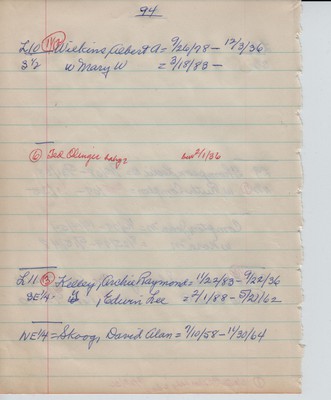 94
L10 Wilkins, Albert A = 9/26/78 - 12/3/36
S½ w Mary W = 3/18/83 -
(6) Ted Olinger baby? bur 2/1/36
L11 (3) Kelley, Archie Raymond = 11/22/83 - 9/22/36
SE¼ - , Edwin Lee = 2/1/88 - 5/21/62
NE¼ = Skoog, David Alan = 9/10/58 - 11/30/64